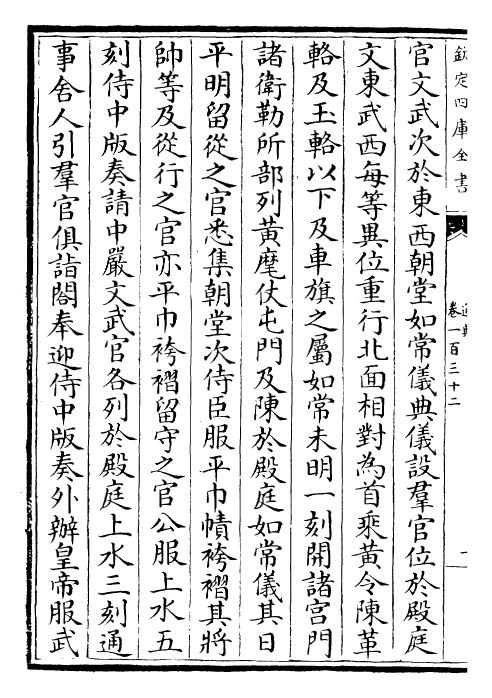 欽定四庫全書
通典
卷一百三十二
官文武次於東西朝堂如常儀典儀設羣官位於殿庭
文東武西每等異位重行北面相對為首乘黃令陳革
輅及玉輅以下及車旗之屬如常未明一刻開諸宮門
諸衛勒所部列黃麾仗屯門及陳於殿庭如常儀其日
平明留從之官悉集朝堂次侍臣服平巾幘袴褶其將
帥等及從行之官亦平巾袴褶留守之官公服上水五
刻侍中版奏請中嚴文武官各列於殿庭上水三刻通
事舍人引羣官俱詣閤奉迎侍中版奏外辦皇帝服武